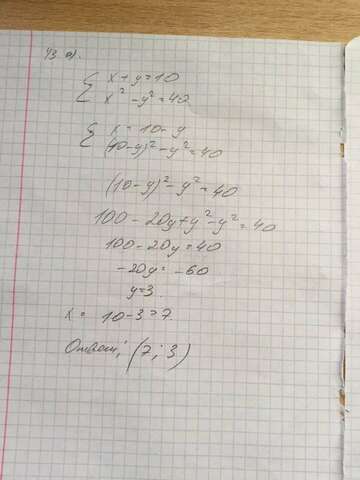 43 а).
{ x + y = 10
x² - y² = 40
{ x = 10 - y
(10-y)² - y² = 40
(10-y)² - y² = 40
100 - 20y + y² - y² = 40
100 - 20y = 40
-20y = -60
y = 3
x = 10 - 3 = 7
Ответ: (7; 3)